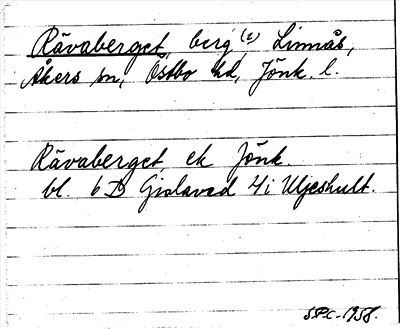 Rävaberget, berg (e) Linnås,
Åkers sn, Östbo hd, Jönk. l.
Rävaberget ek Jönk
bl. 6 D Gislaved 4i Uljeshult.
SPC-1958.